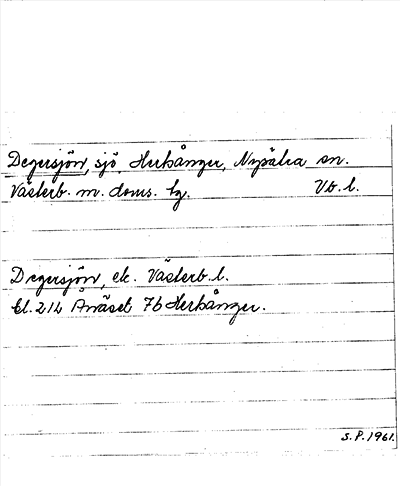 Degersjön, sjö. Herrånger, Nysätra sn.
Västerb. m. doms. lg. Vb. l.
Degersjön, ek. Västerb. l.
Bl. 212 Ånäset 7b Herrånger.
S.P. 1961.